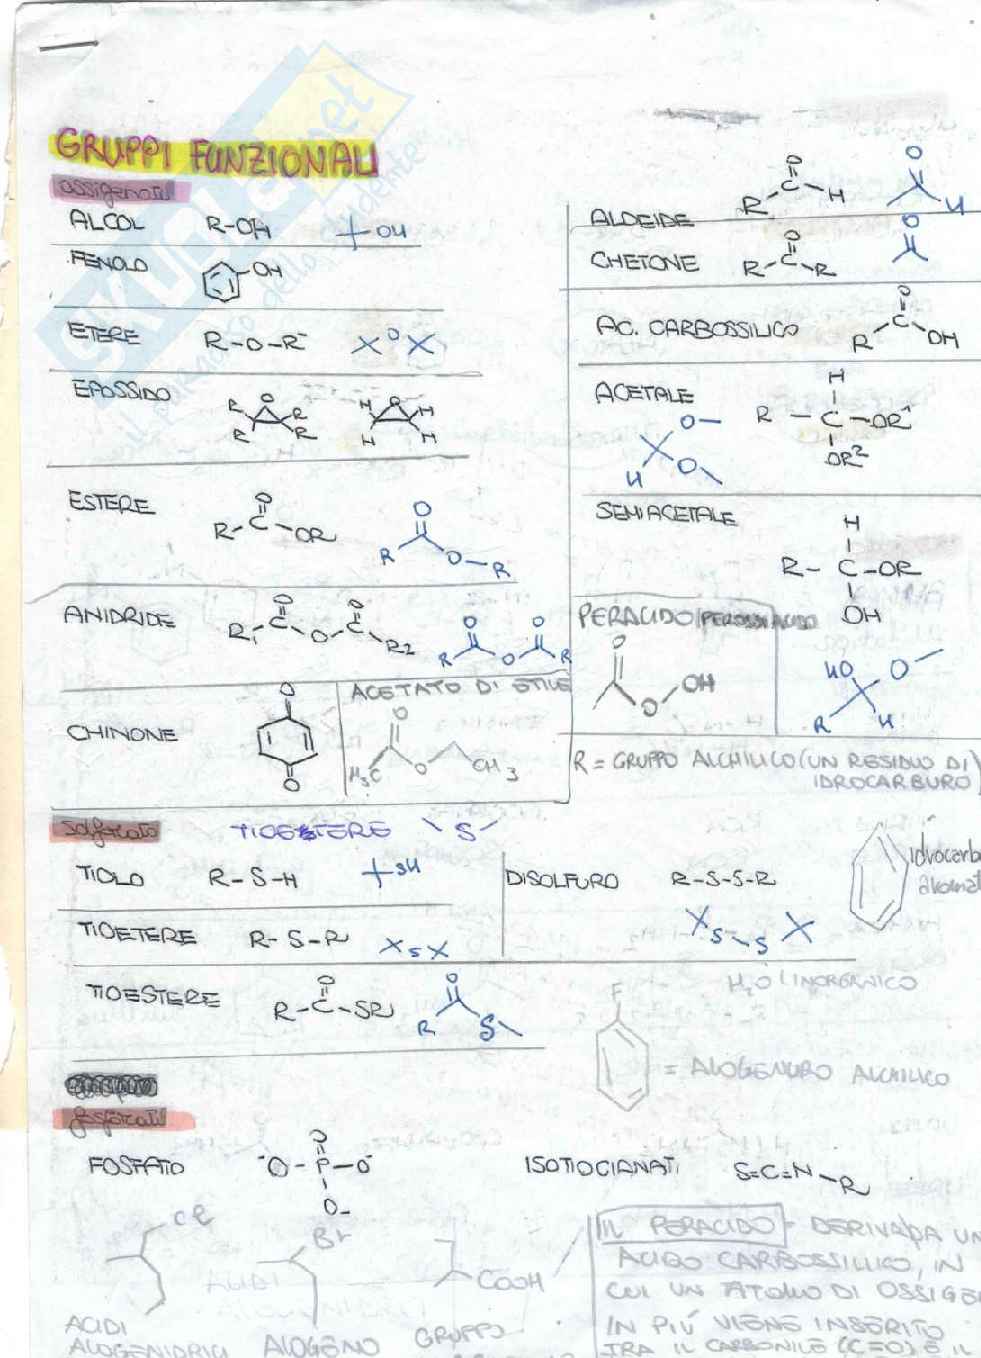 GRUPPI FUNZIONALI
ossigenati
ALCOL R-OH OH
FENOLO OH
ETERE R-O-R' O
EPOSSIDO O R R R R O H H H H
ESTERE R-C-OR O O R O-R
ANIDRIDE R1 C O O C O R2 O O R O R
CHINONE O O
ACETATO DI ETILE
O H3C O CH3
ALDEIDE O R C H O H
CHETONE O R-C-R O
AC. CARBOSSILICO O R C OH
ACETALE H R-C-OR1 OR2
O H O
SEMIACETALE H R-C-OR OH
HO O R H
PERACIDO/PEROSSIACIDO
O O OH
R = GRUPPO ALCHILICO (UN RESIDUO DI IDROCARBURO)
solforato TIOETERE S
TIOLO R-S-H SH
DISOLFURO R-S-S-R S S
TIOETERE R-S-R S
TIOESTERE O R-C-SR O R S
idrocarb
aromat
H2O (INORGANICO
F
= ALOGENURO ALCHILICO
fosforati
FOSFATO -O-P-O- O O-
ISOTIOCIANATI S=C=N-R
Cl
Br
COOH
ACIDI
ALOGENIDRICI
ALOGENO
GRUPPO
IL PERACIDO - DERIVA DA UN
ACIDO CARBOSSILICO, IN
CUI UN ATOMO DI OSSIGE
IN PIÙ VIENE INSERITO
TRA IL CARBONILE (C=O) E IL